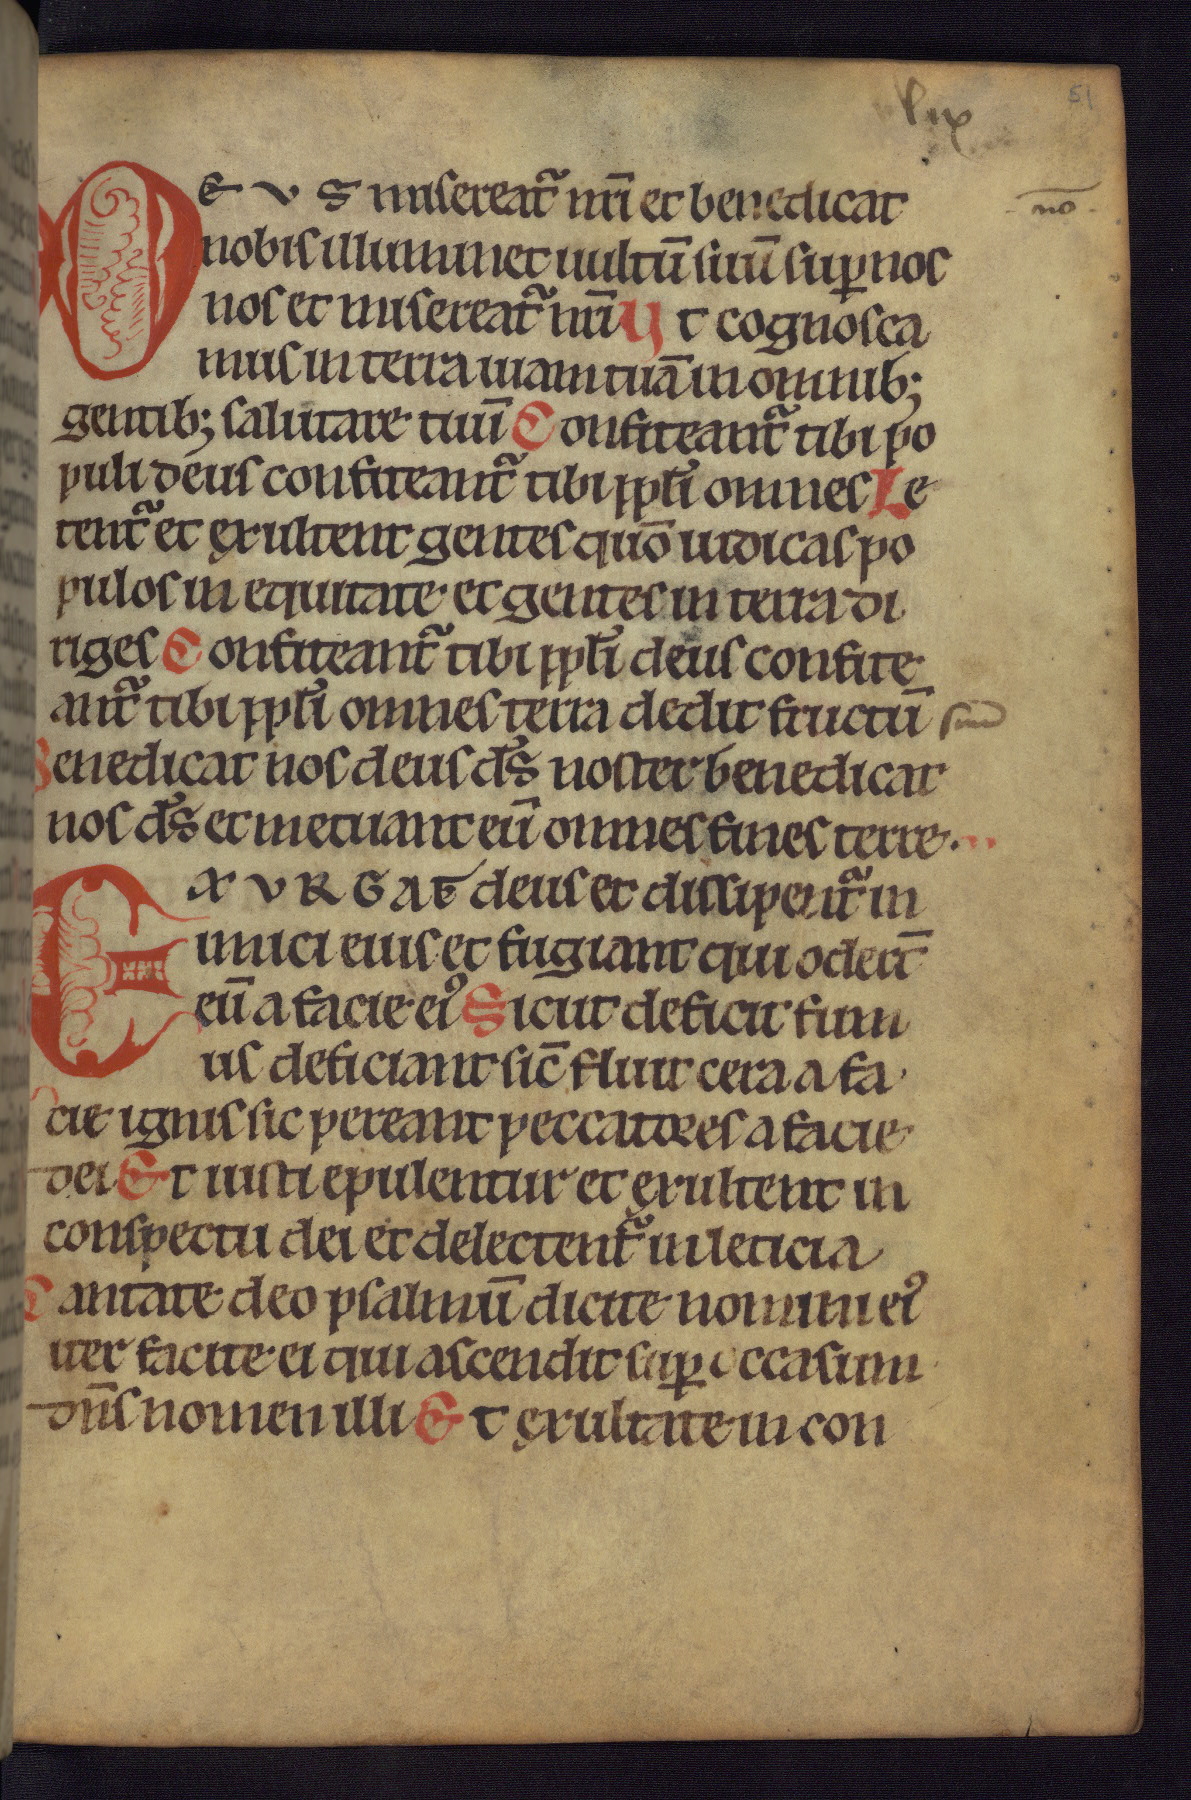 lix
51
DEVS misereat᷑ nr̄i et benedicat
no
nobis illuminet uultū suū suꝑ nos
nos et misereat᷑ nr̄i Ut cognosca
mus in terra uiam tuā in omnib;
gentib; salutare tuū Confiteant᷑ tibi po
puli deus confiteant᷑ tibi ppl̄i omnes Le
tent᷑ et exultent gentes quō iudicas po
pulos in equitate et gentes in terra di
riges Confiteant᷑ tibi ppl̄i deus confite
ant᷑ tibi ppl̄i omnes terra dedit fructū suū
Benedicat nos deus ds̄ noster benedicat
nos ds̄ et metuant eū omnes fines terre
EXVRGAT deus et dissipent᷑ in
imici eius et fugiant qui odert̄
eū a facie eiꝰ Sicut deficit fum
us deficiant sic̄ fluit cera a fa
cie ignis sic pereant peccatores a facie
dei Et iusti epulentur et exultent in
conspectu dei et delectent᷑ in leticia
Cantate deo psalmū dicite nomini eiꝰ
iter facite ei qui ascendit suꝑ occasum
dn̄s nomen illi Et exultate in con